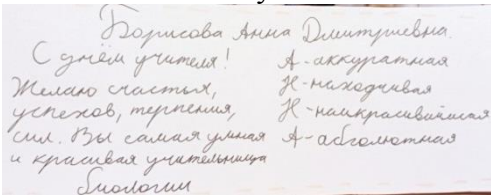 Борисова Анна Дмитриевна.
С днём учителя!
Желаю счастья,
успехов, терпения,
сил. Вы самая умная
и красивая учительница
биологии
А - аккуратная
Н - находчивая
Н - наикрасивийшая
А - абголютная